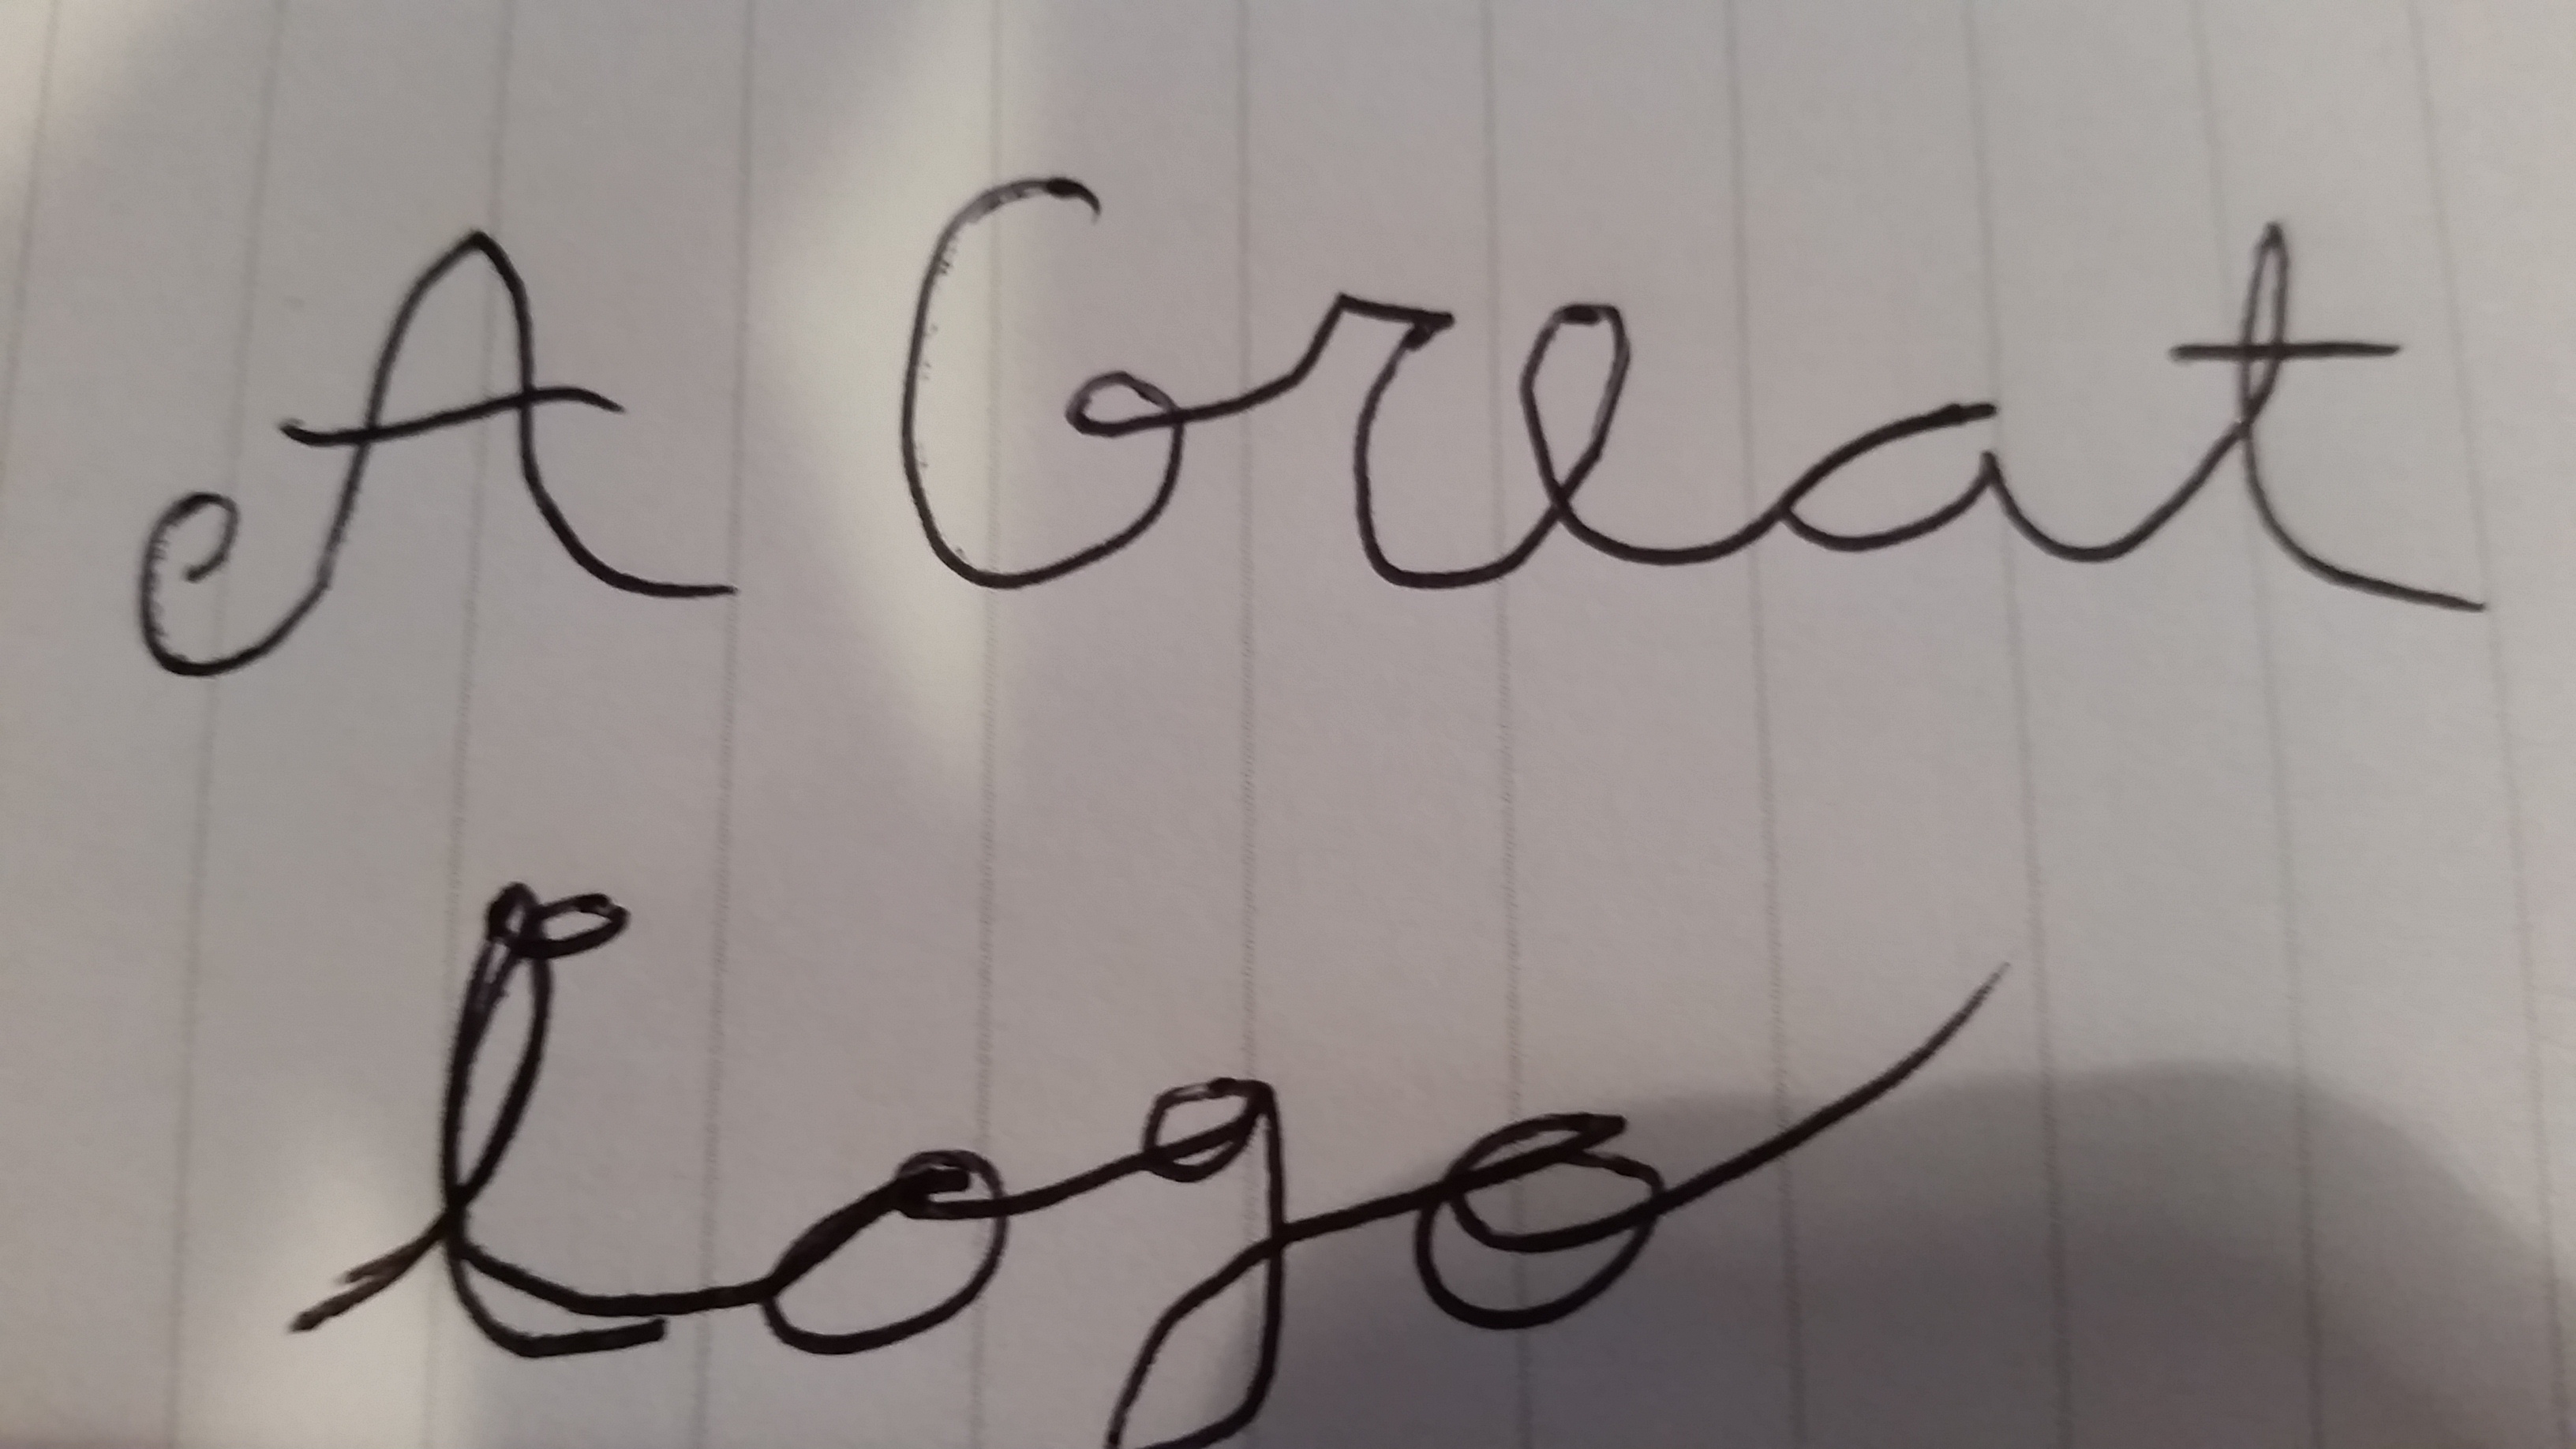 A Great
Logo